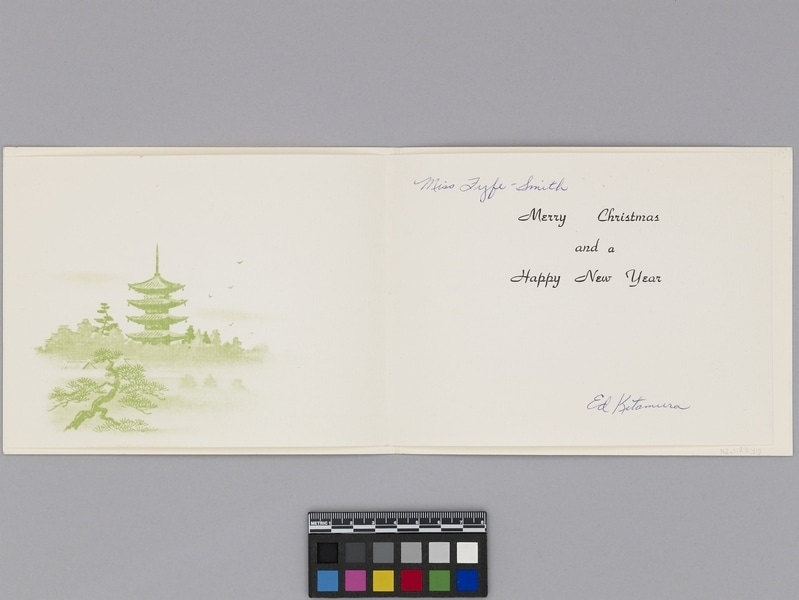 Miss Fyfe-Smith
Merry Christmas
and a
Happy New Year
Ed Kitamura
METRIC